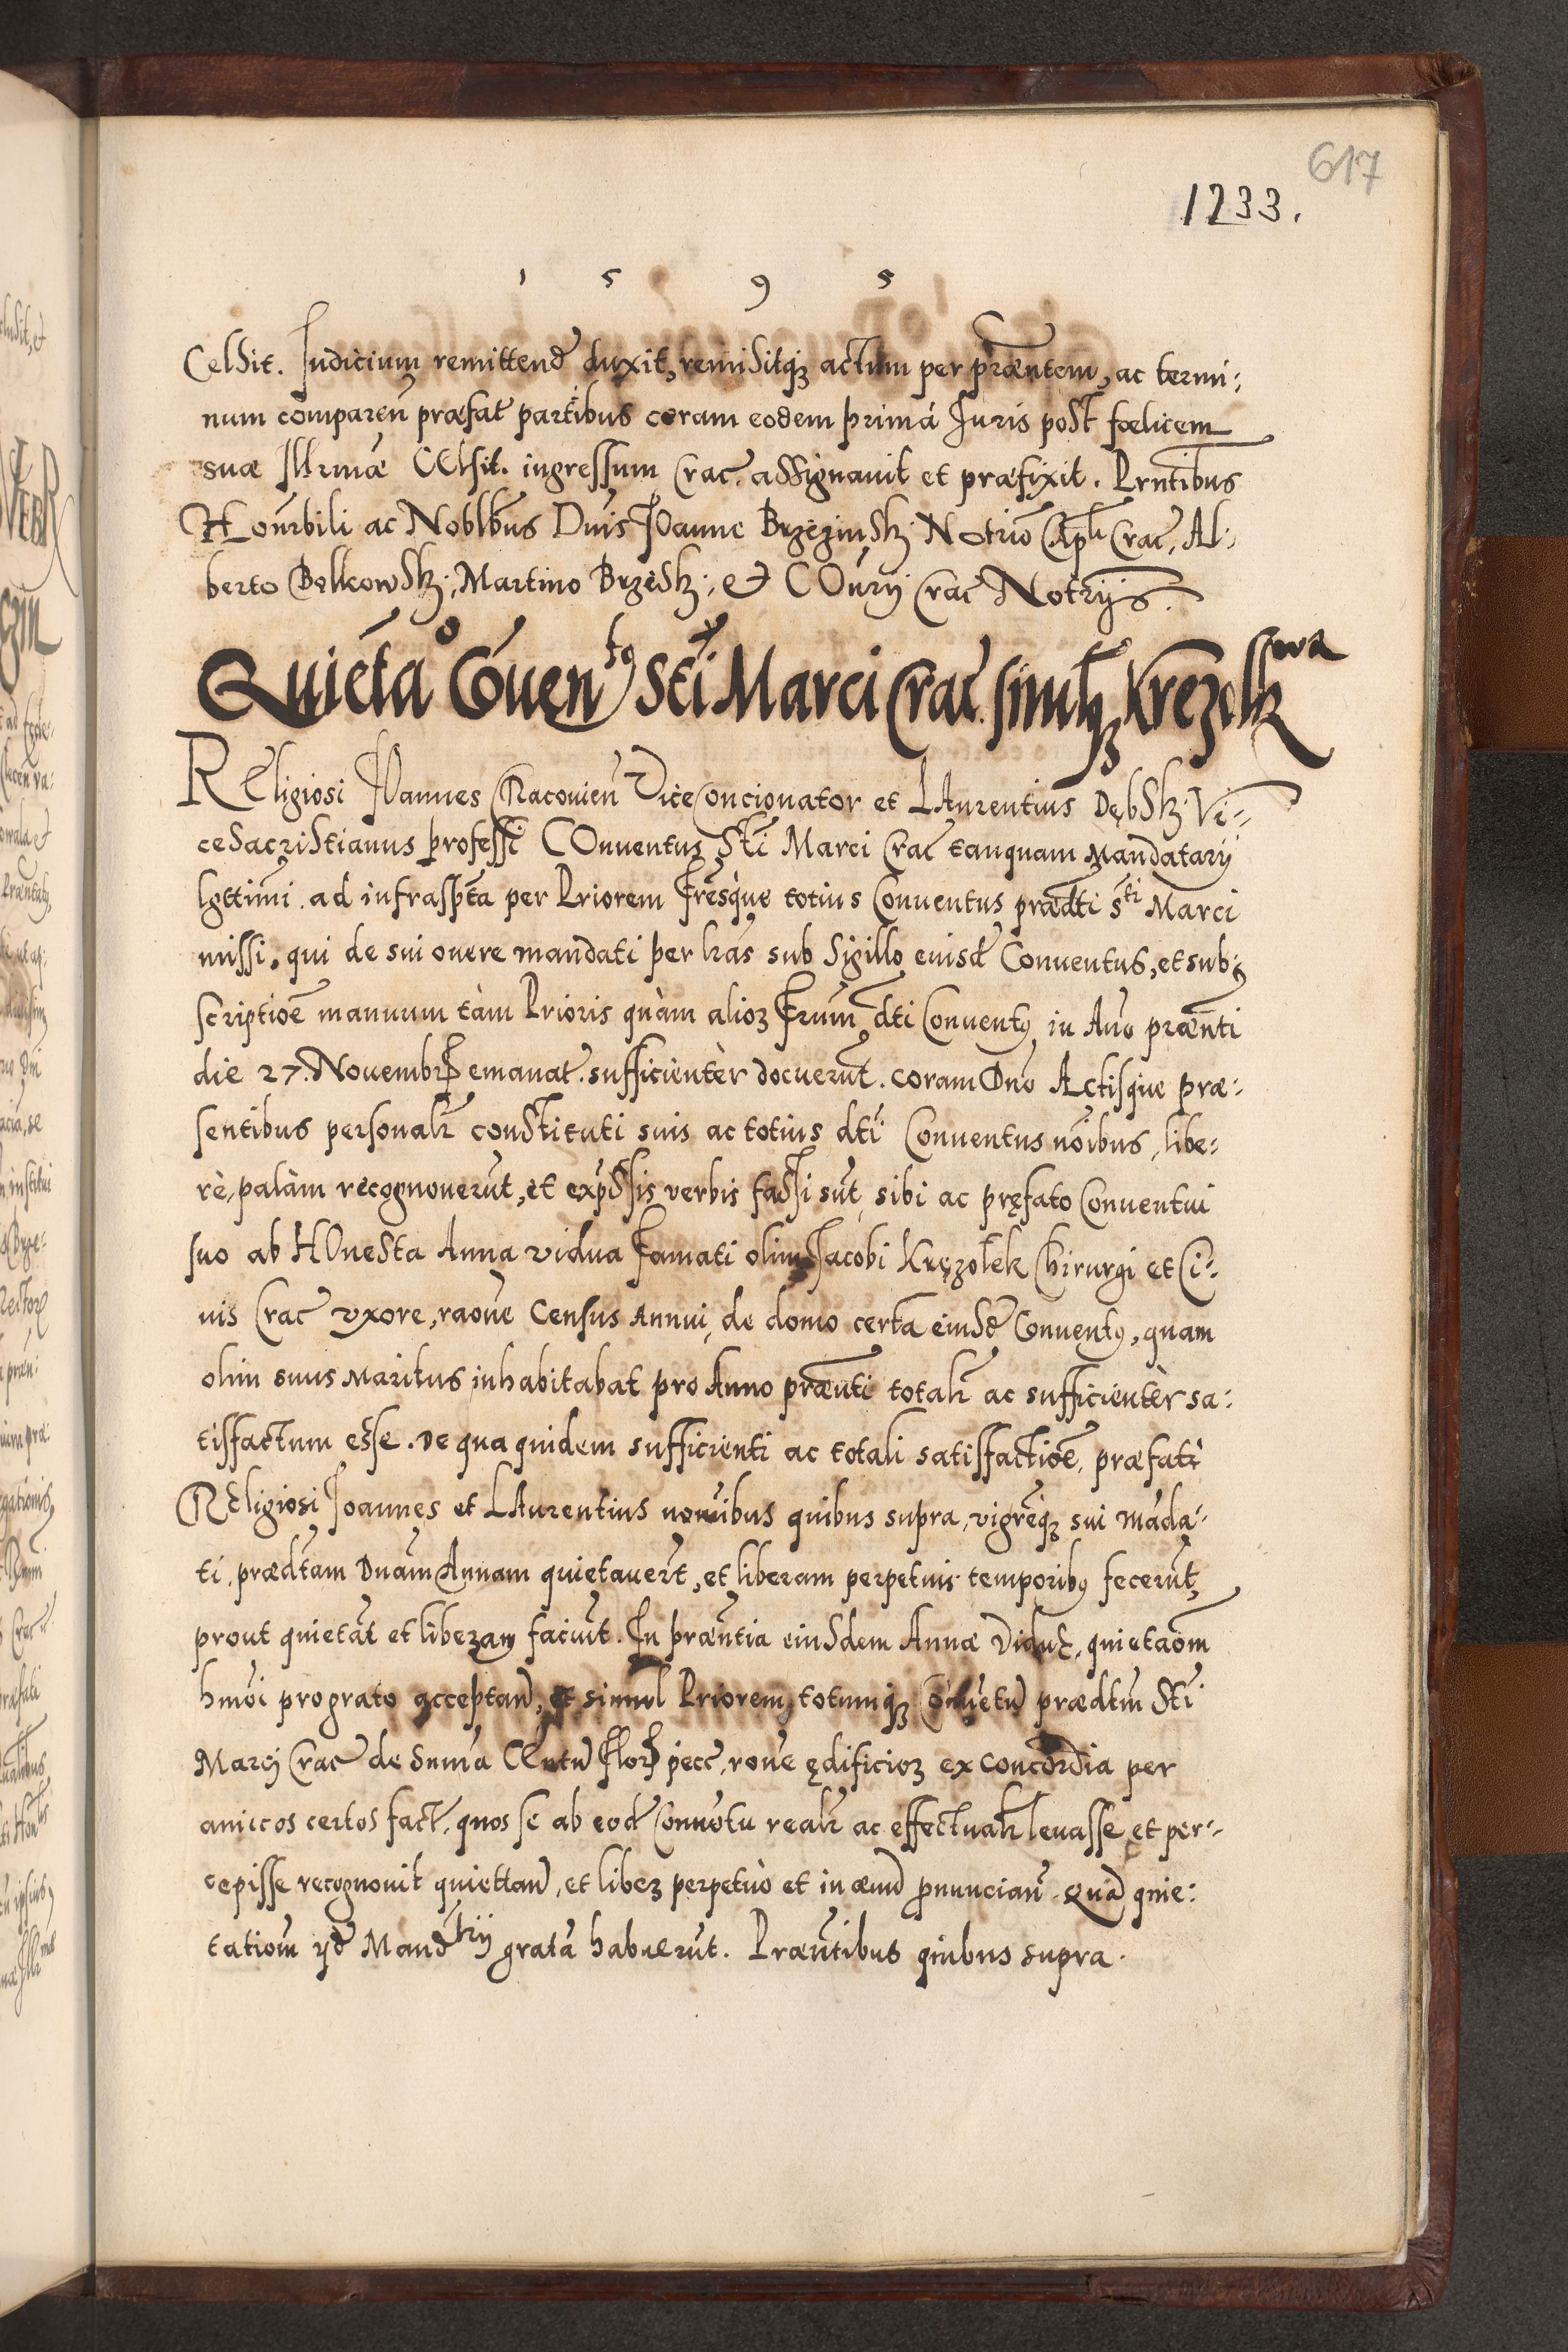 617
1233.
1 5 9 5
Celsit. Iudicium remittend duxit, remisitq3 actum per præntem, ac termi:
num comparen̄ præfat partibus coram eodem primā Iuris post fœlicem
suæ Illrmæ CElsit. ingressum Crac. assignavit et præfixit. Prntibus
Honrbili ac Noblbus Dnis IOanne Brzeginsk̃ Notrio Cap̃li Crac, Al:
berto Bełkowsk̃; Martino Brzesk̃; & COnrij Crac Notrijs.
Quietāo Cōuentq Sti Marci Crac. simulq3 Krezołkowa
REligiosi IOannes Racouien̄ ViceConcionator et LAurentius Dębsk̃. Vi:
ceSacristianus professi COnuentus Sti Marci Crac tanquam Mandatarij
lgttimi ad infraspta per Priorem Fresque totius Conuentus prædti Sti Marci
missi, qui de sui onere mandati per lras sub Sigillo eiusd Conuentus, et sub:
scriptioē manuum tàm Prioris quàm alior3 Frum dti Conuentq in Año prænti
die 27. Novembr emanat. sufficientèr docuerūt. coram Dno Actisque præ:
sentibus personalr constituti suis ac totius dti Conuentus noībus, libe:
rè, palàm recognouerūt, et exprssis verbis fassi sūt, sibi ac pręfato Conuentui
suo ab HOnesta Anna vidua Famati olim Jacobi Kręzołek Chirurgi et Ci:
uis Crac vxore, raone Census Annui, de domo certa eiusd Conuentq, quam
olim suus Maritus inhabitabat pro Anno prænti totalr ac sufficientèr sa:
tisfactum esse. De qua quidem sufficienti ac totali satisfactioē, præfati
REligiosi Ioannes et LAurentius nominibus quibus supra, vigreq3 sui māda:
ti, prædtam Dnam Annam quietauert, et liberam perpetuis temporibq fecerūt,
prout quietāt et liberam faciūt. In præntia eiusdem Annæ Viduę, quietaom
hmoi pro grato acceptan, et simul Priorem, totumq3 Conuetū prædtm Sti
Marci Crac de summa CEntū Flor pecc, rone ędificior3 ex concordia per
amicos certos fact, quos se ab eod Conuētu realr ac effectualr leuasse et per:
cepisse recognouit quiettand, et liber3 perpetuò et in æuū pronuncian̄. Quā quie:
tationm ijd Mandtrij gratā habuerūt. Præntibus quibus supra.